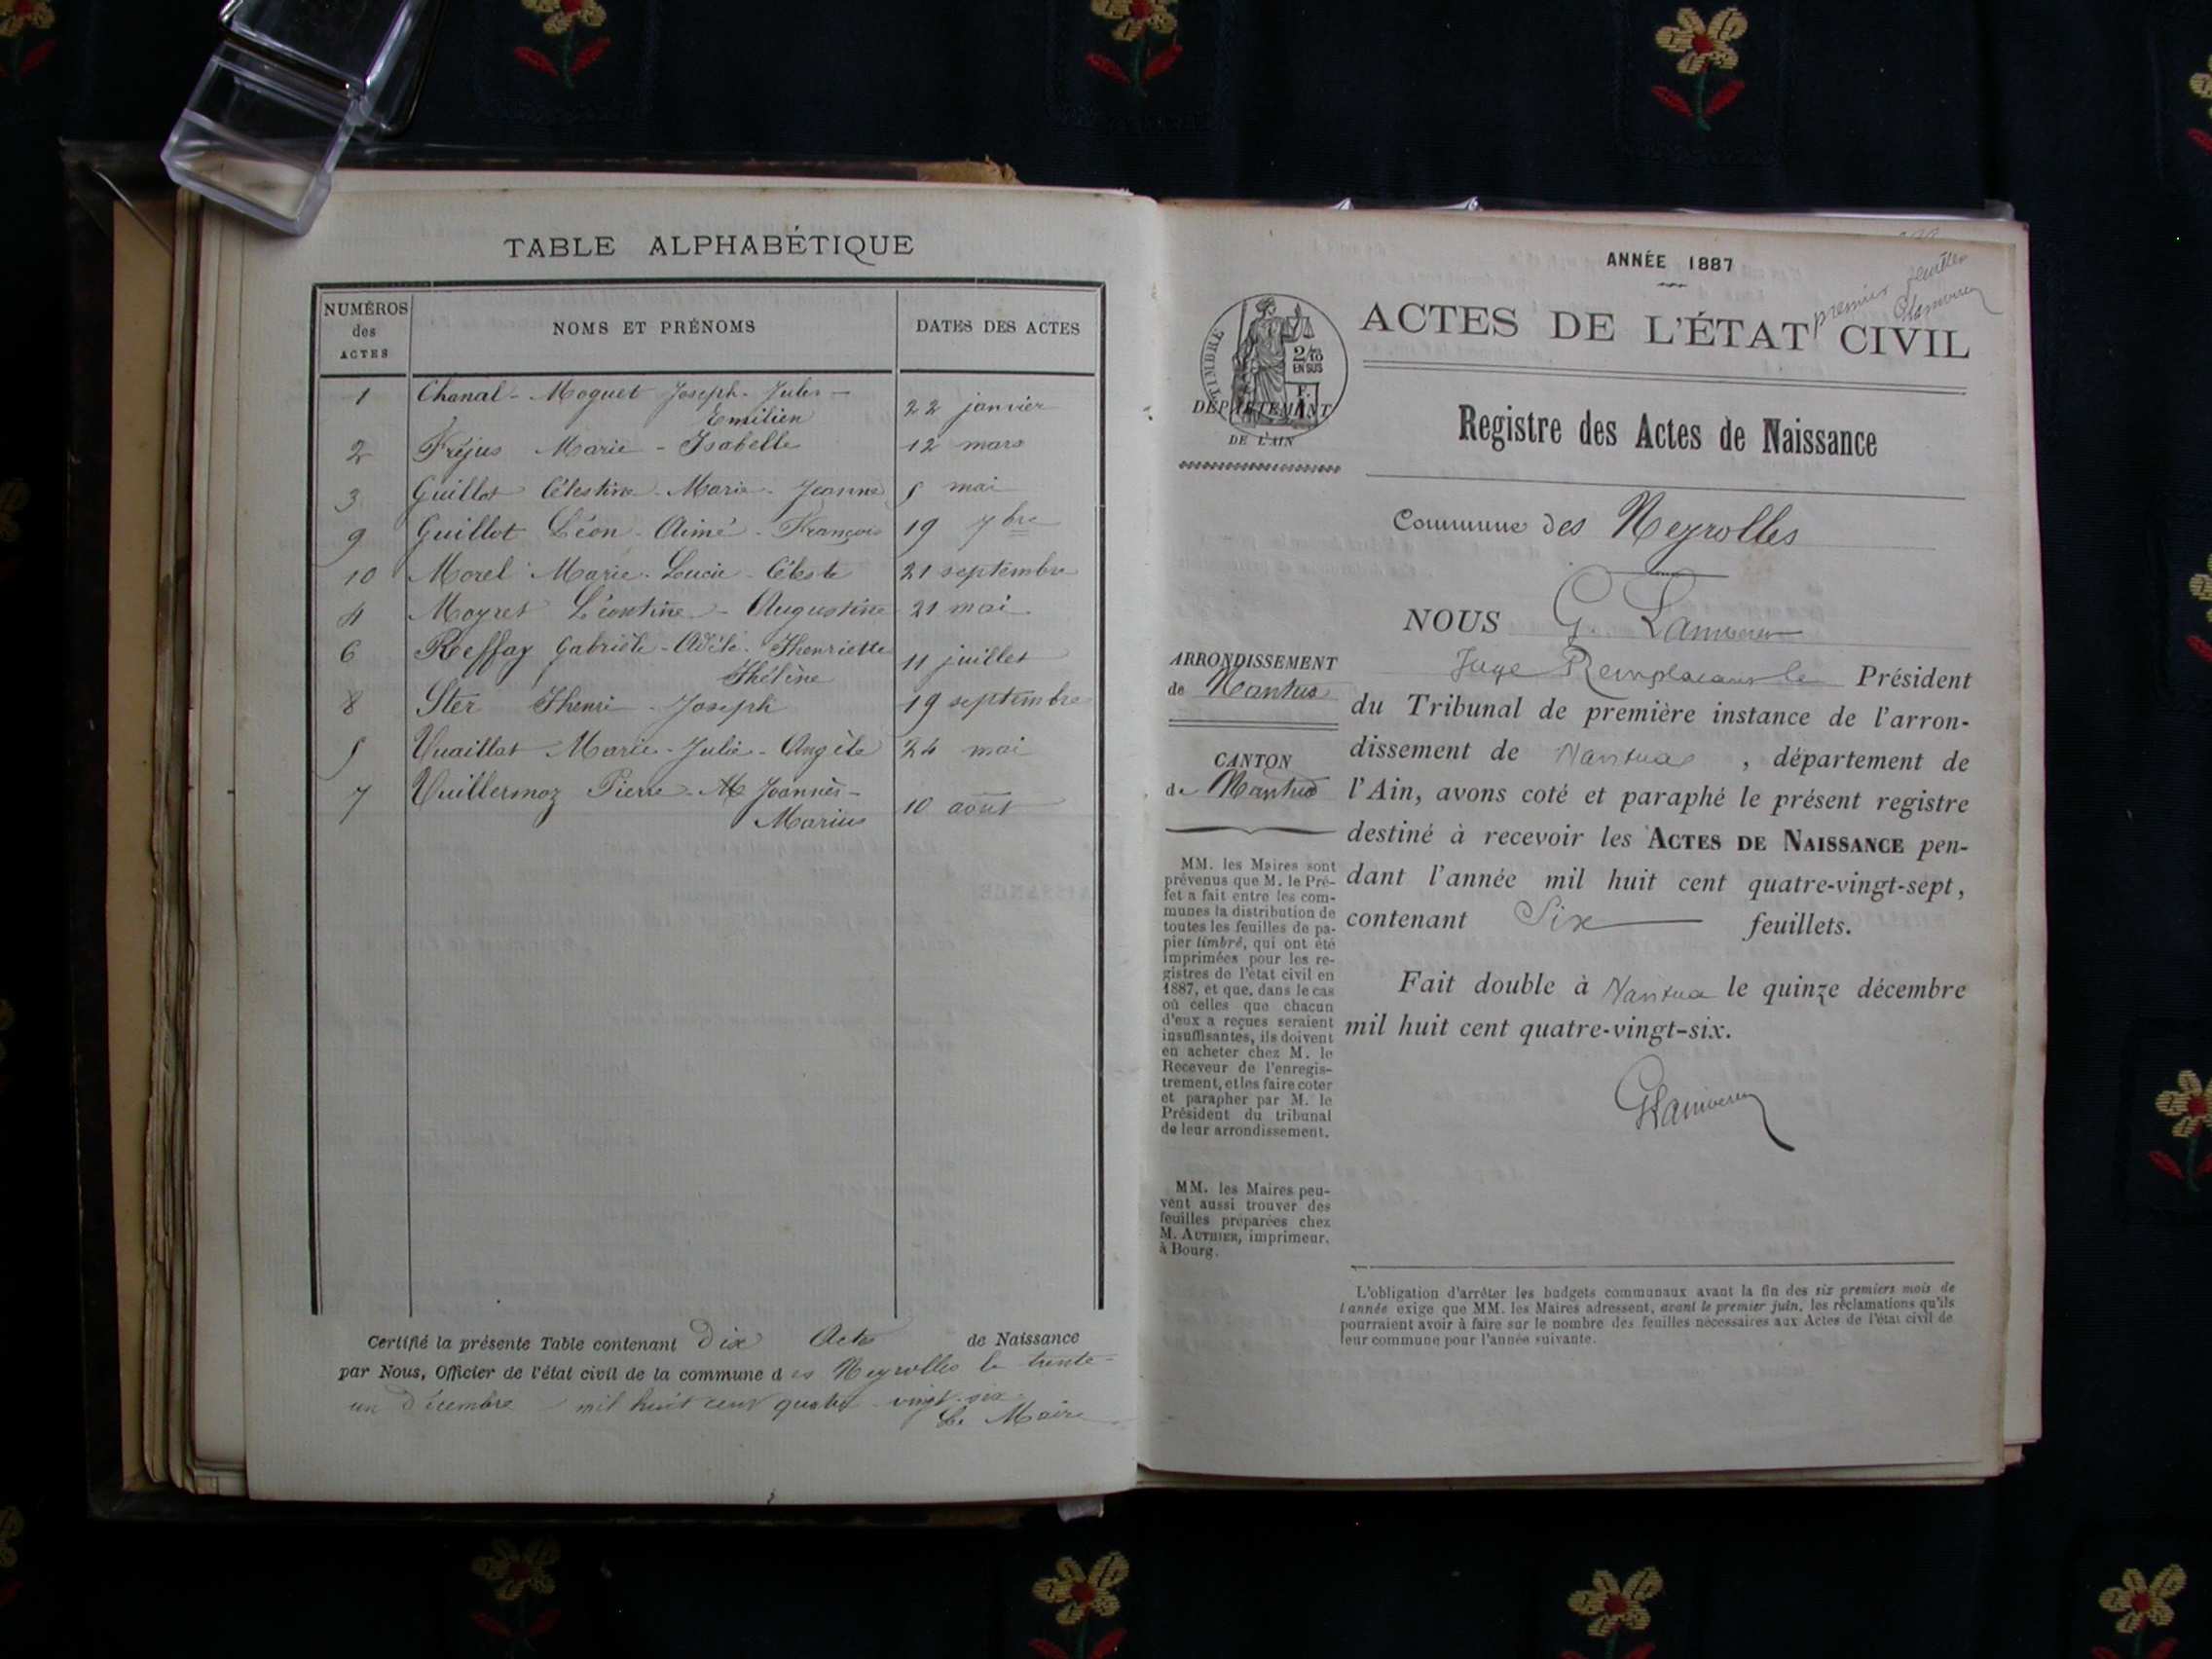 TABLE ALPHABÉTIQUE
NUMÉROS des ACTES
NOMS ET PRÉNOMS
DATES DES ACTES
1 Chanal - Moquet Joseph - Jules - Emilien 22 janvier
2 Fréjus Marie - Isabelle 12 mars
3 Guillot Célestine - Marie - Jeanne 5 mai
9 Guillot Léon - Aimé - François 19 7bre
10 Morel Marie - Loucie - Céleste 21 septembre
4 Moyret Léontine - Augustine 21 mai
6 Reffay Gabrièle - Adèle - Henriette Hélène 11 juillet
8 Ster Henri - Joseph 19 septembre
5 Vuaillat Marie - Julie - Angèle 24 mai
7 Vuillermoz Pierre - M Joannès - Marius 10 août
Certifié la présente Table contenant Dix Actes de Naissance
par Nous, Officier de l'état civil de la commune des Neyrolles le trente-
un Décembre mil huit cent quatre vingt-six
Le Maire
ANNÉE 1887
premier feuillet
ACTES DE L'ÉTAT CIVIL
TIMBRE
2/10
EN SUS
DÉPARTEMENT
DE L'AIN
Registre des Actes de Naissance
Commune des Neyrolles
NOUS G.
Juge Remplaçant le Président
ARRONDISSEMENT
de Nantua
du Tribunal de première instance de l'arron-
dissement de Nantua, département de
CANTON
de Nantua
l'Ain, avons coté et paraphé le présent registre
destiné à recevoir les ACTES DE NAISSANCE pen-
dant l'année mil huit cent quatre-vingt-sept,
contenant Six feuillets.
Fait double à Nantua le quinze décembre
mil huit cent quatre-vingt-six.
MM. les Maires sont
prévenus que M. le Pré-
fet a fait entre les com-
munes la distribution de
toutes les feuilles de pa-
pier timbré, qui ont été
imprimées pour les re-
gistres de l'état civil en
1887, et que, dans le cas
où celles que chacun
d'eux a reçues seraient
insuffisantes, ils doivent
en acheter chez M. le
Receveur de l'enregis-
trement, et les faire coter
et parapher par M. le
Président du tribunal
de leur arrondissement.
MM. les Maires peu-
vent aussi trouver des
feuilles préparées chez
M. AUTHIER, imprimeur,
à Bourg.
L'obligation d'arrêter les budgets communaux avant la fin des six premiers mois de
l'année exige que MM. les Maires adressent, avant le premier juin, les réclamations qu'ils
pourraient avoir à faire sur le nombre des feuilles nécessaires aux Actes de l'état civil de
leur commune pour l'année suivante.